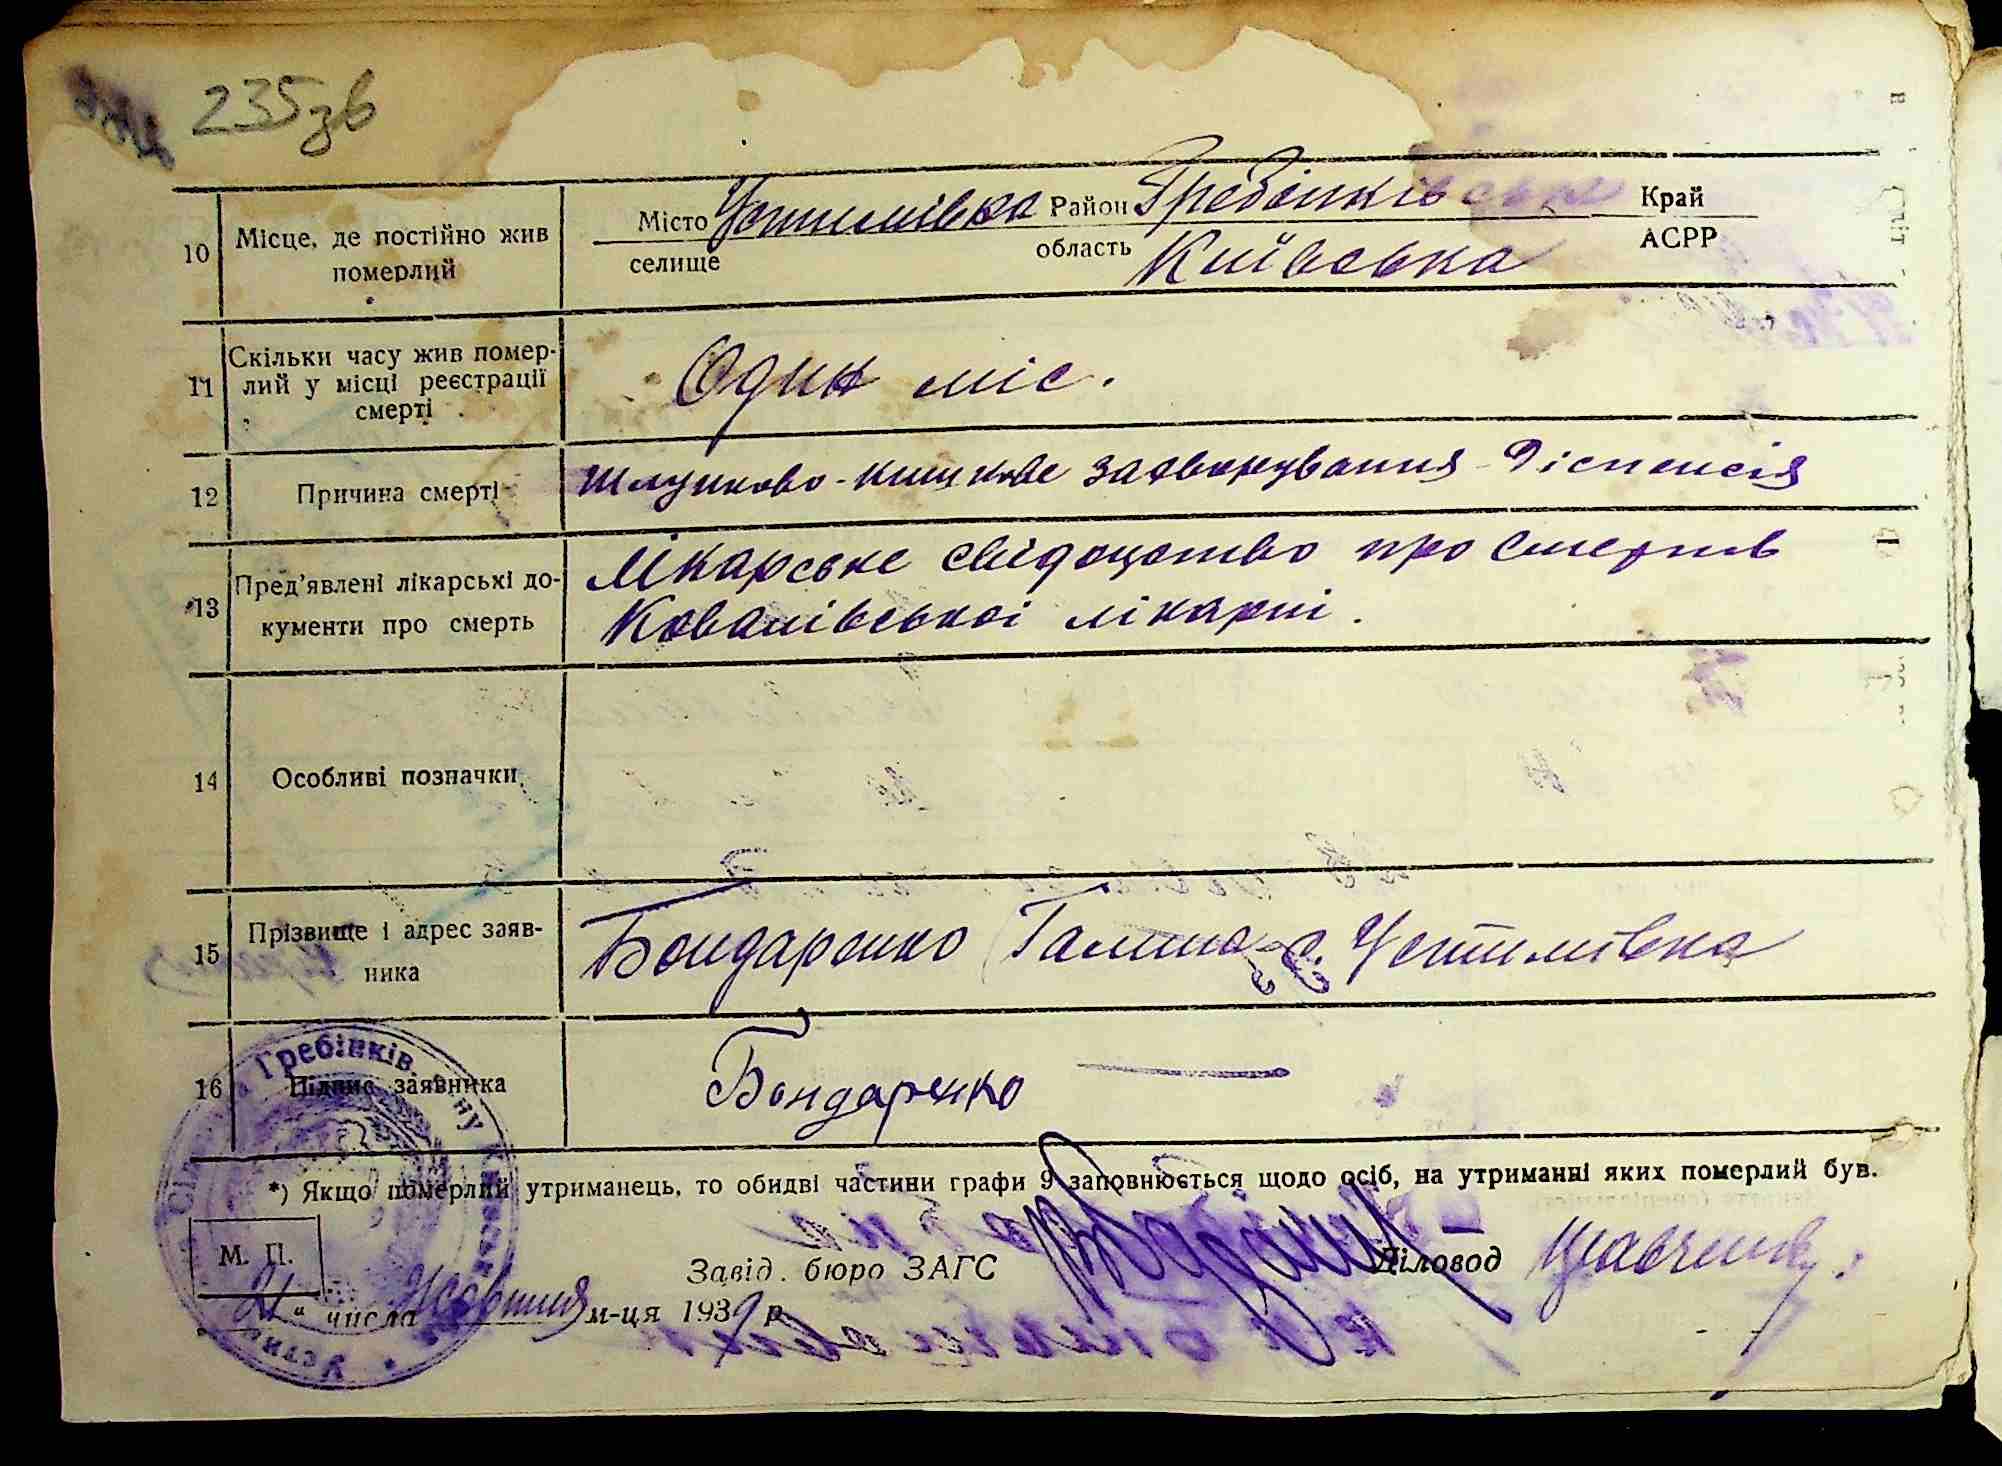 235зв
10 Місце, де постійно жив померлий
Місто Устимівка Район Гребінківський Край
селище область Київська АСРР
11 Скільки часу жив помер-
лий у місці реєстрації
смерті
Один міс.
12 Причина смерті
Шлунково-кишкове захворування - Діспепсія
13 Пред'явлені лікарські до-
кументи про смерть
Лікарське свідоцтво про смерть
Ковалівської лікарні.
14 Особливі позначки
15 Прізвище і адрес заяв-
ника
Бондаренко Галина с. Устимівка
16 Підпис заявника
Бондаренко
*) Якщо померлий утриманець, то обидві частини графи 9 заповнюється щодо осіб, на утриманні яких померлий був.
М. П.
Завід. бюро ЗАГС
Діловод
21 “ числа Жовтня м-ця 1939 р
Гребінків